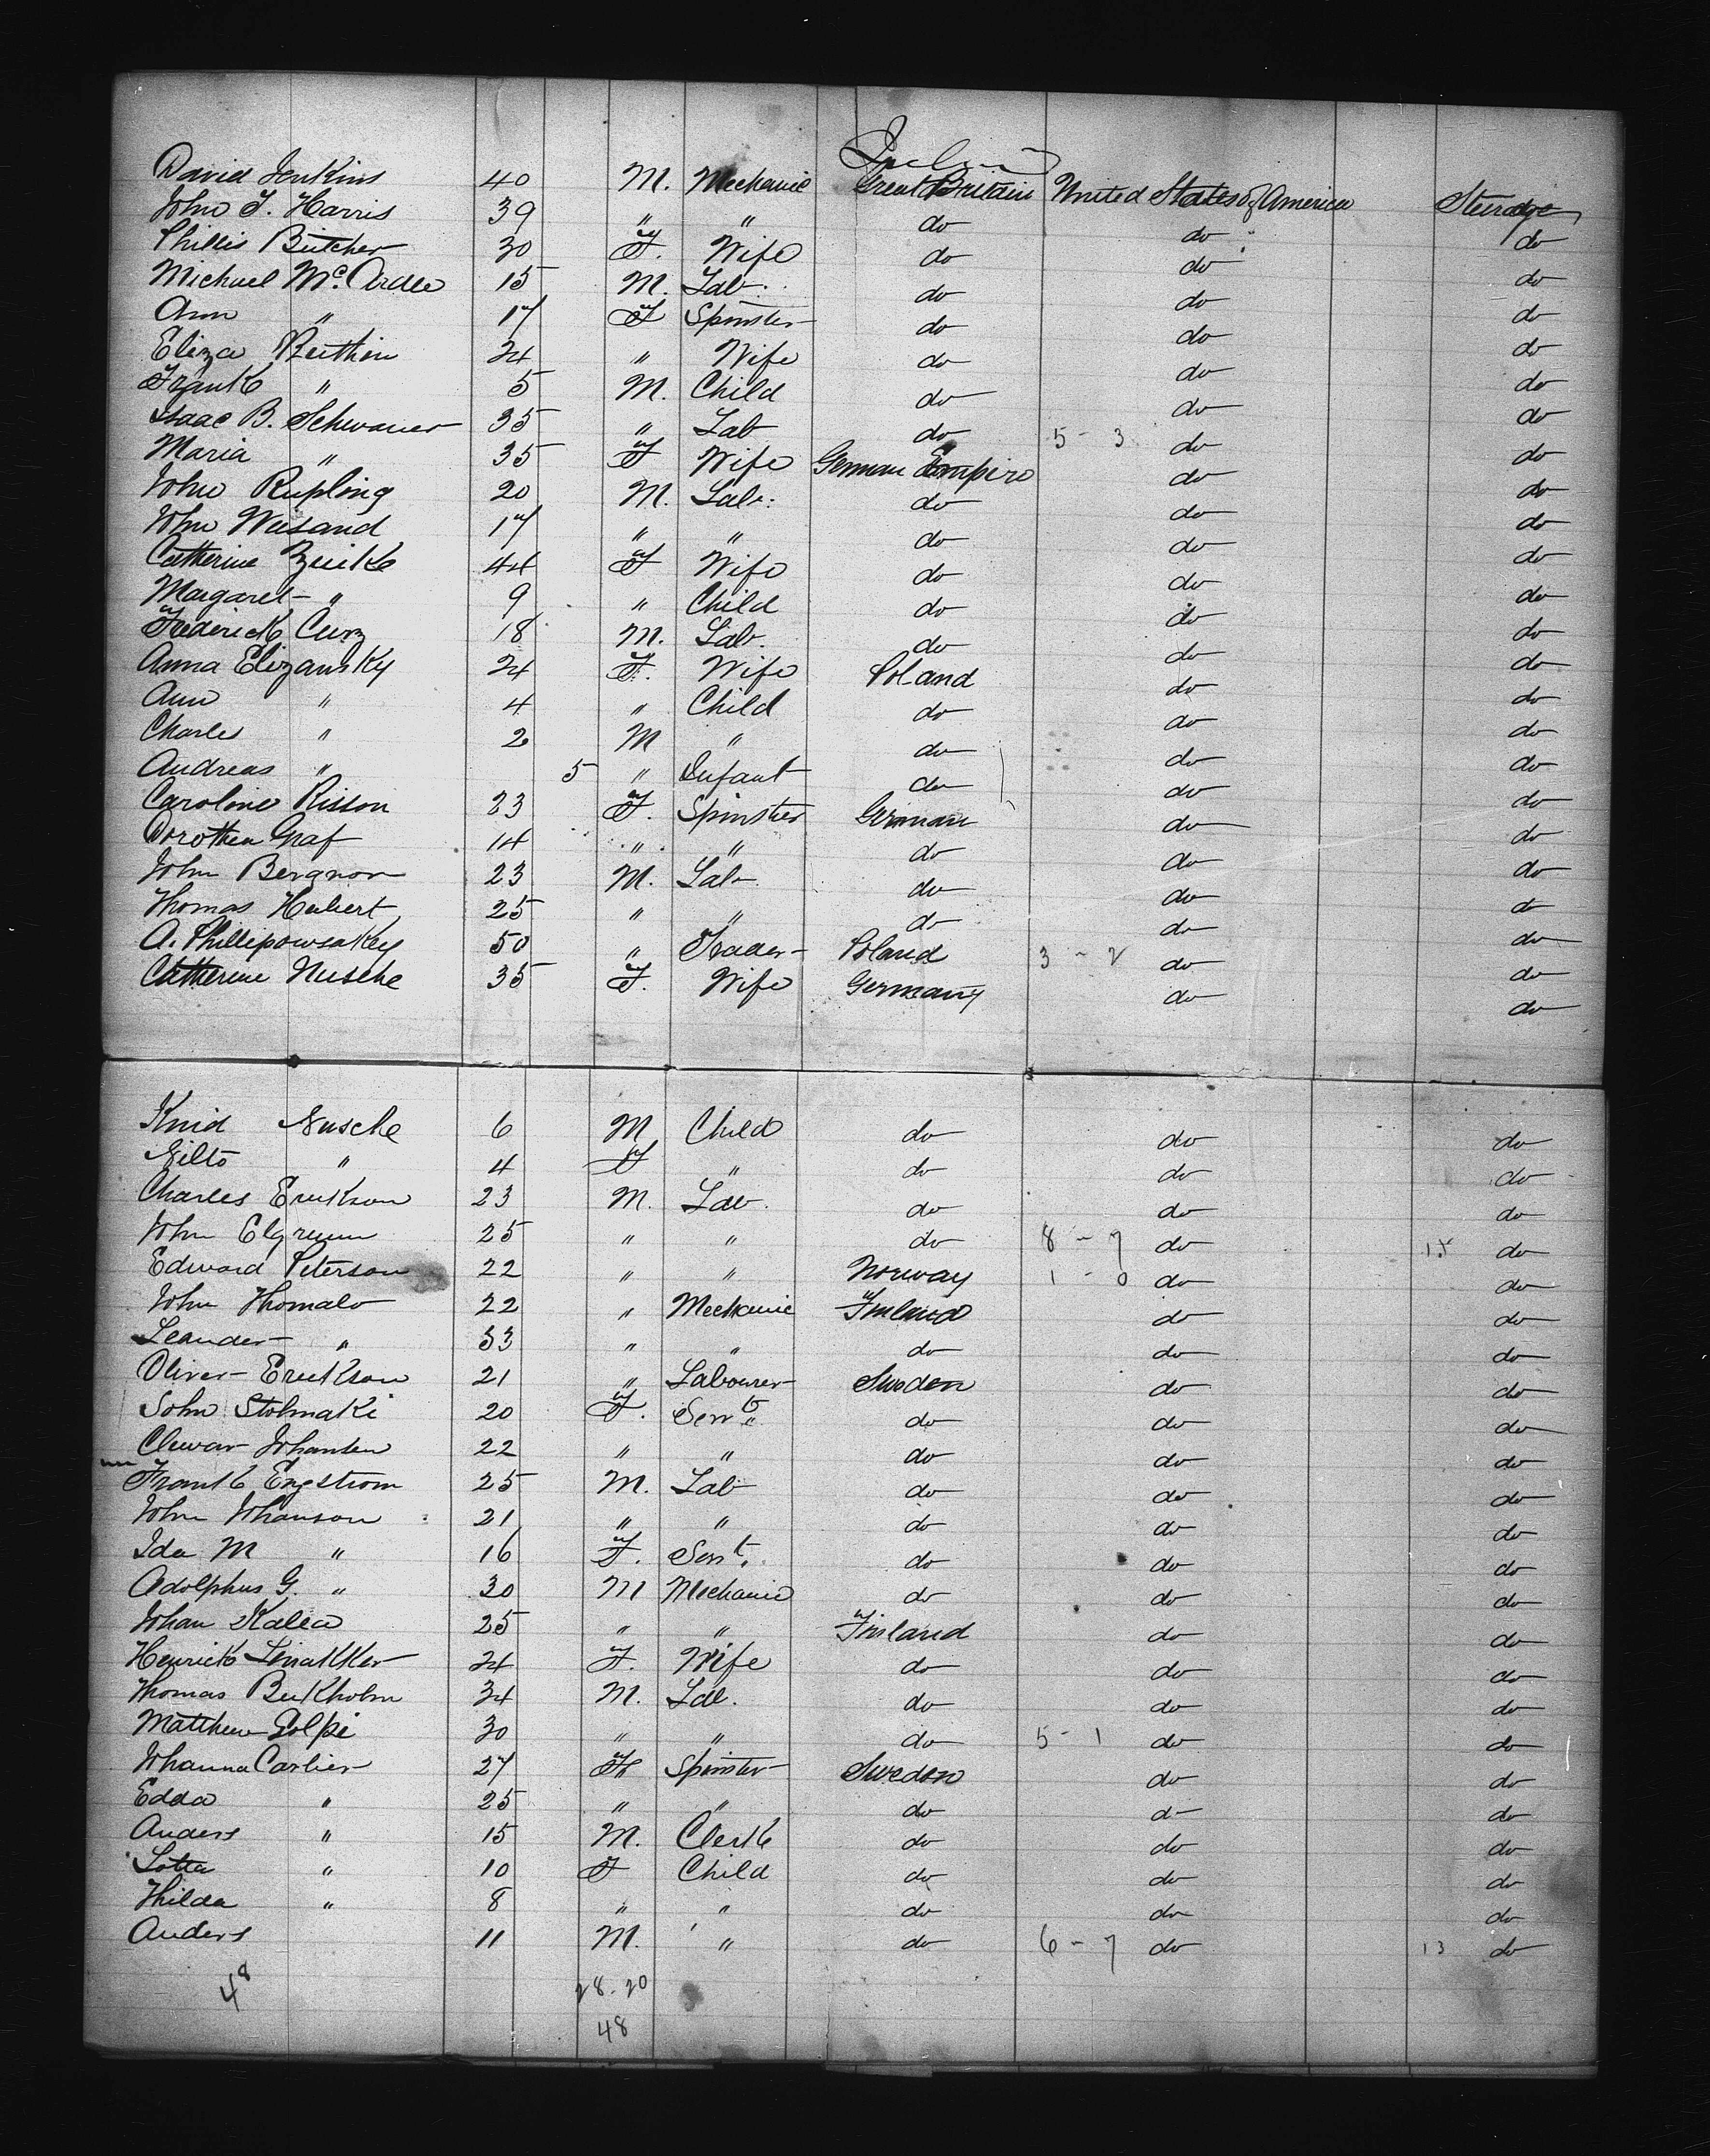 Ireland
David Jenkins 40 M. Mechanic Great Britain United States of America Steerage
John T. Harris 39 " " do do do
Phillis Butcher 30 F. Wife do do do
Michael McArdle 15 M. Lab. do do do
Ann " 17 F Spinster do do do
Eliza Reithin 24 " Wife do do do
Frank " 5 M. Child do do do
Isaac B. Schwaner 35 " Lab do 5 - 3 do do
Maria " 35 F Wife German Empire do do
John Rupling 20 M. Lab. do do do
John Weisand 17 " " do do do
Catherine Zuike 44 F Wife do do do
Margaret " 9 " Child do do do
Frederick Curz 18 M. Lab. do do do
Anna Elizansky 24 F. Wife Poland do do
Ann " 4 " Child do do do
Charles " 2 M " do do do
Andreas " 5 " Infant do do do
Caroline Risson 23 F. Spinster German do do
Dorothea Graf 14 " " do do do
John Bergnor 23 M. Lab. do do do
Thomas Hubert 25 " " do do do
A. Phillipowsakey 50 " Trader Poland 3 - 2 do do
Catherine Nusche 35 F. Wife Germany do do
Knid Nusche 6 M Child do do do
Nilto " 4 F " do do do
Charles Erickson 23 M. Lab. do do do
John Elgreen 25 " " do 8 - 7 do 15 do
Edward Peterson 22 " " Norway 1 - 0 do do
John Thomalo 22 " Mechanic Finland do do
Leander " 33 " " do do do
Oliver Erickson 21 " Labourer Sweden do do
John Stolmaki 20 F. Servt. do do do
Clewar Johansen 22 " " do do do
Frank Engstrom 25 M. Lab do do do
John Johanson 21 " " do do do
Ida M " 16 F. Sert. do do do
Adolphus G. " 30 M Mechanic do do do
Johan Kalea 25 " " Finland do do
Henrick Linakker 24 F. Wife do do do
Thomas Beikholm 34 M. Lab. do do do
Matthew Golpi 30 " " do 5 - 1 do do
Johanna Carlier 27 F Spinster Sweden do do
Edda " 25 " " do do do
Anders " 15 M. Clerk do do do
Lotta " 10 F Child do do do
Hilda " 8 " " do do do
Anders 11 M. " do 6 - 7 do 13 do
48 28.20
48